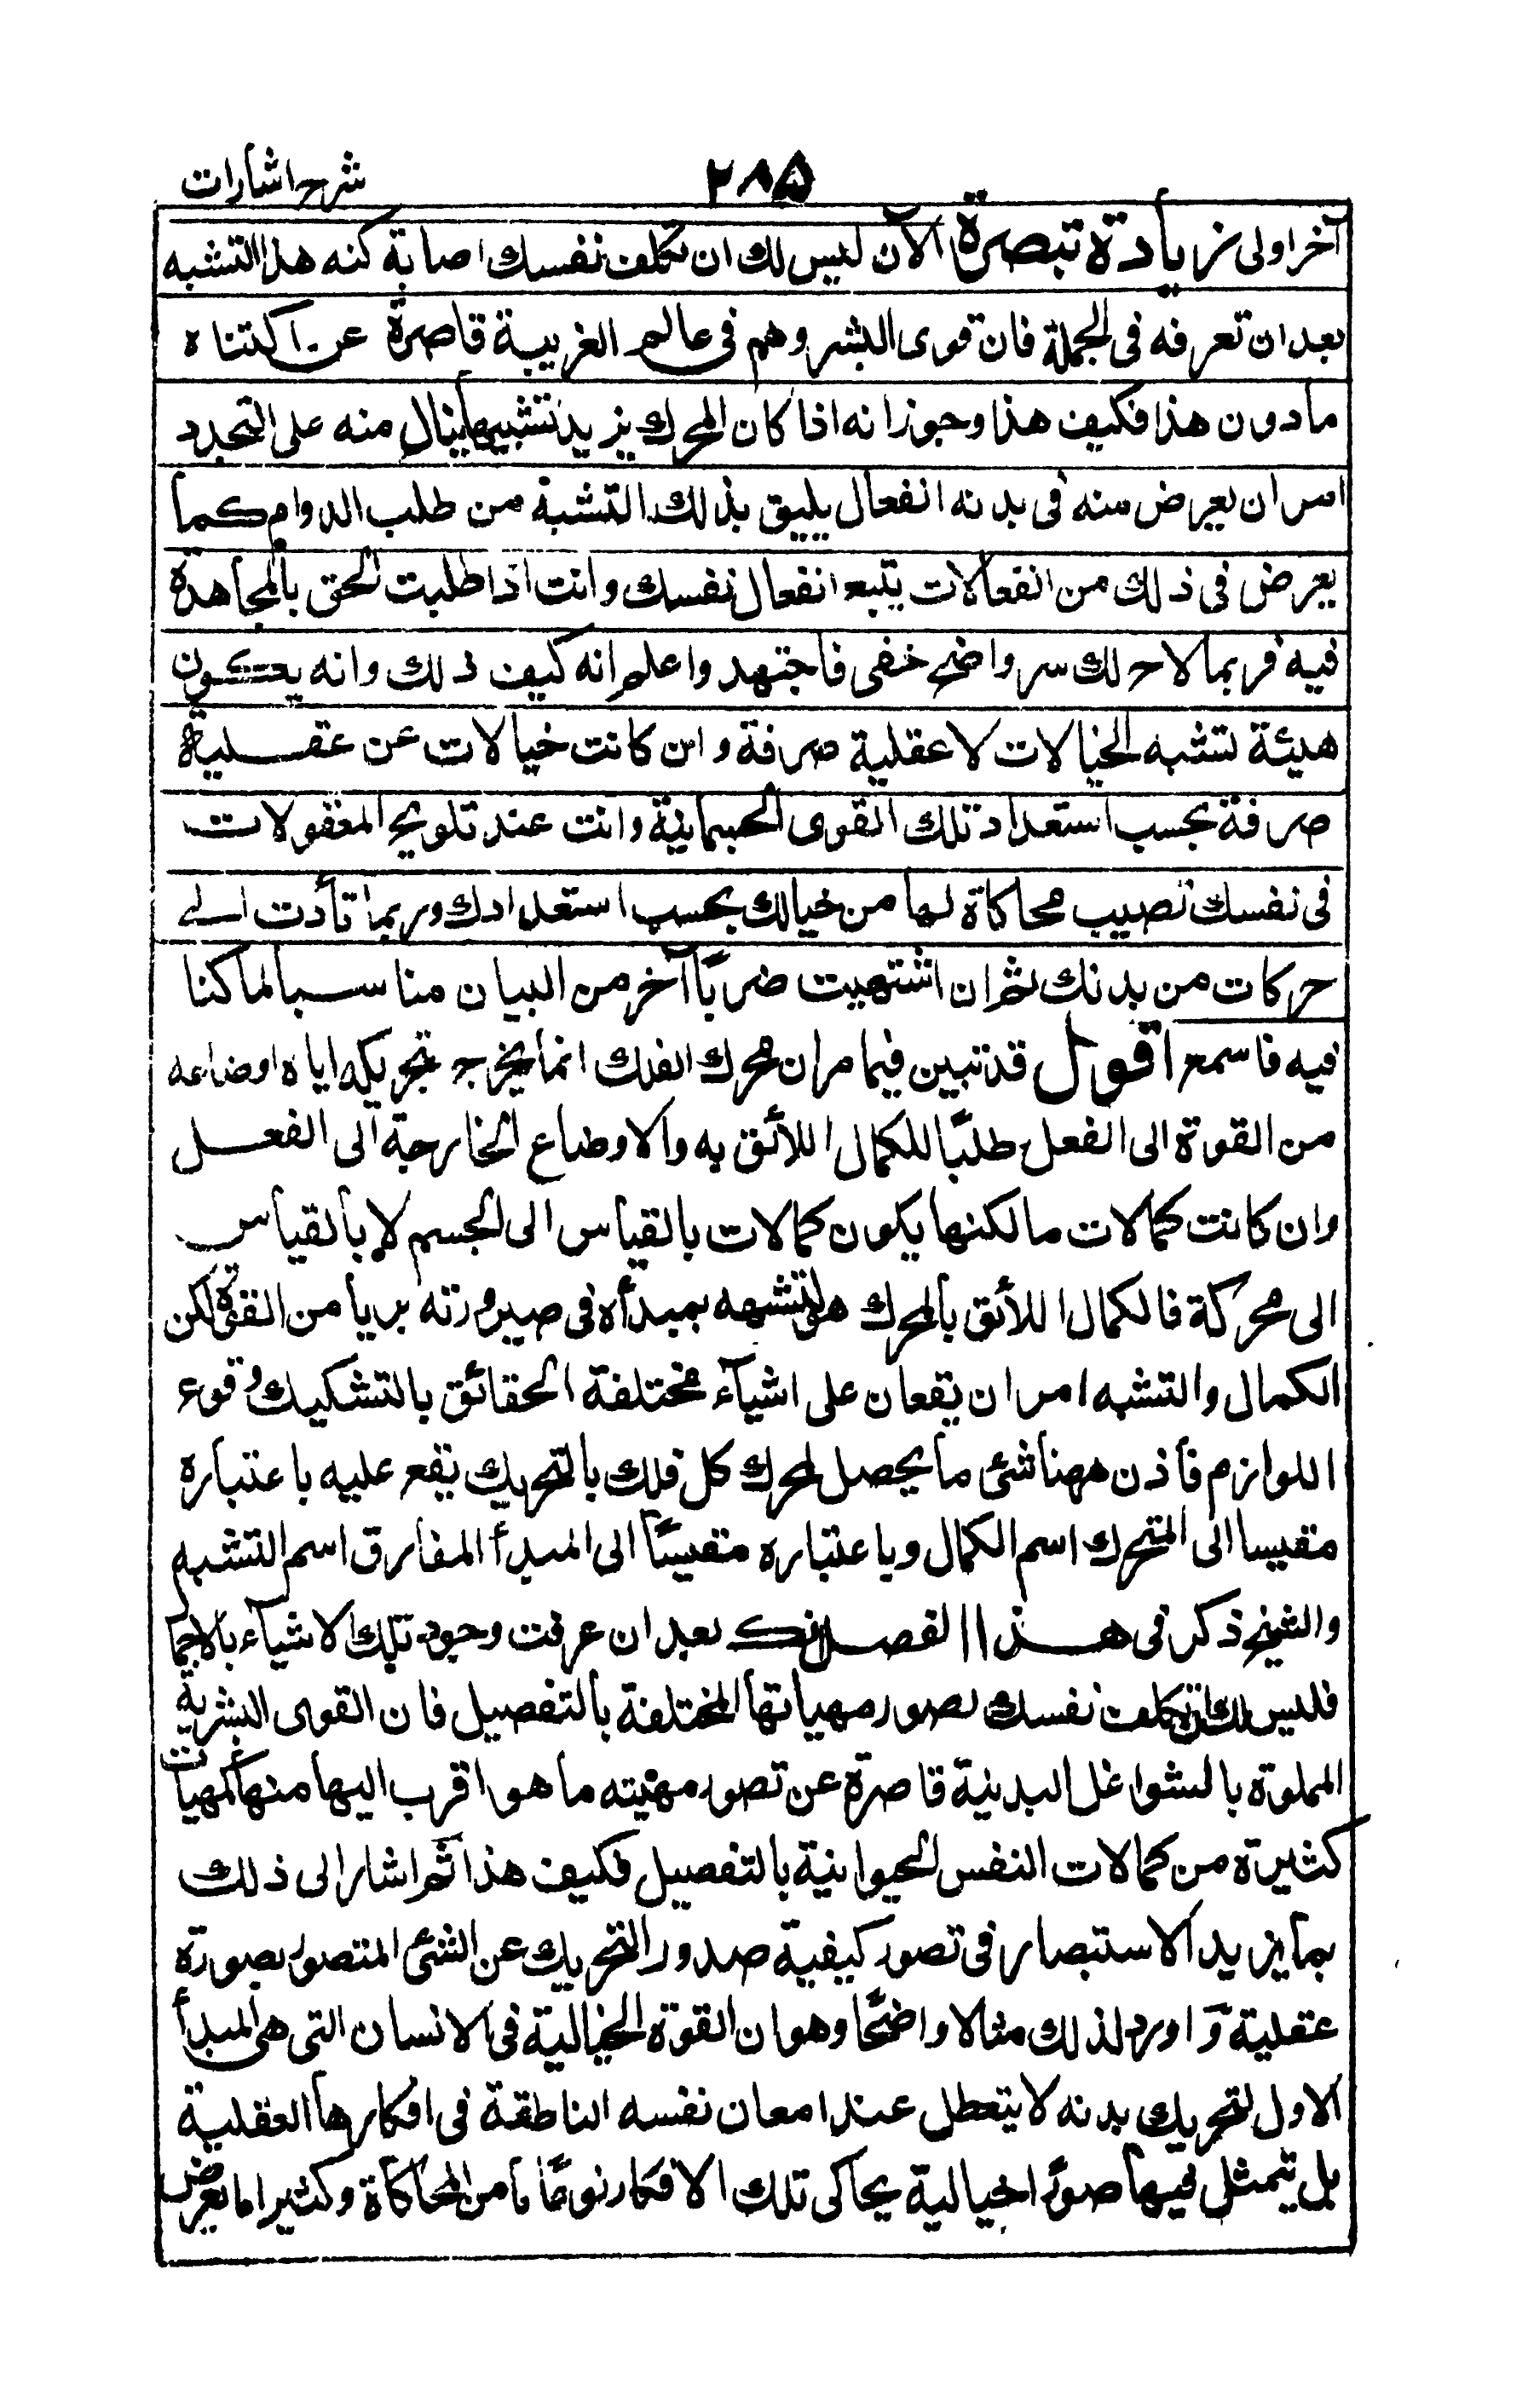 شرح اشارات
٢٨٥
آخر اولى زيادة تبصرة الآن ليس لك ان تكلف نفسك اصابة كنه هذا التشبه
بعد ان تعرفه فى الجملة فان قوى البشر وهم فى عالم الغربية قاصرة عن اكتناه
مادون هذا فكيف هذا وجوز انه اذا كان المحرك يزيد تشبيها ينال منه على التجدد
امر ان يعرض منه فى بدنه انفعال يليق بذلك التشبه من طلب الدوام كما
يعرض فى ذلك من انفعالات يتبع انفعال نفسك وانت اذا طلبت الحق بالمجاهدة
فيه فربما لاح لك سر واضح خفى فاجتهد واعلم انه كيف ذلك وانه يكون
هيئة تشبه الخيالات لا عقلية صرفة وان كانت خيالات عن عقلية
صرفة بحسب استعداد تلك القوى الجسمانية وانت عند تلويح المعقولات
فى نفسك تصيب محاكاة لها من خيالك بحسب استعدادك وربما تأدت الى
حركات من بدنك ثم ان اشتهيت ضربًا آخر من البيان مناسبا لما كنا
فيه فاسمع اقول قد تبين فيما مر ان محرك الفلك انما يخرج بتحريكه اياه اوضاعه
من القوة الى الفعل طلبًا للكمال اللائق به والاوضاع الخارجة الى الفعل
وان كانت كمالات ما لكنها يكون كمالات بالقياس الى الجسم لا بالقياس
الى محركة فالكمال اللائق بالمحرك هو تشبهه بمبدأه فى صيرورته بريا من القوة لكن
الكمال والتشبه امران يقعان على اشيآء مختلفة الحقائق بالتشكيك وقوع
اللوازم فأذن ههنا شئ ما يحصل لمحرك كل فلك بالتحريك يقع عليه باعتباره
مقيسا الى المتحرك اسم الكمال وباعتباره مقيسًا الى المبدأ المفارق اسم التشبه
والشيخ ذكر فى هذا الفصل انك بعد ان عرفت وجود تلك الاشيآء بالاجما
فليس لك ان تكلف نفسك تصور مهياتها المختلفة بالتفصيل فان القوى البشرية
المملوة بالشواغل البدنية قاصرة عن تصور مهيته ما هو اقرب اليها منها كمهيات
كثيرة من كمالات النفس الحيوانية بالتفصيل فكيف هذا ثم اشار الى ذلك
بما يزيد الاستبصار فى تصور كيفية صدور التحريك عن الشئ المتصور بصورة
عقلية وَاورد لذلك مثالا واضحًا وهو ان القوة الخيالية فى الانسان التى هى المبدأ
الاول لتحريك بدنه لا يتعطل عند امعان نفسه الناطقة فى افكارها العقلية
بل يتمثل فيها صورًا خيالية يحاكى تلك الافكار نوعًا ما من المحاكاة وكثيرا ما يعرض